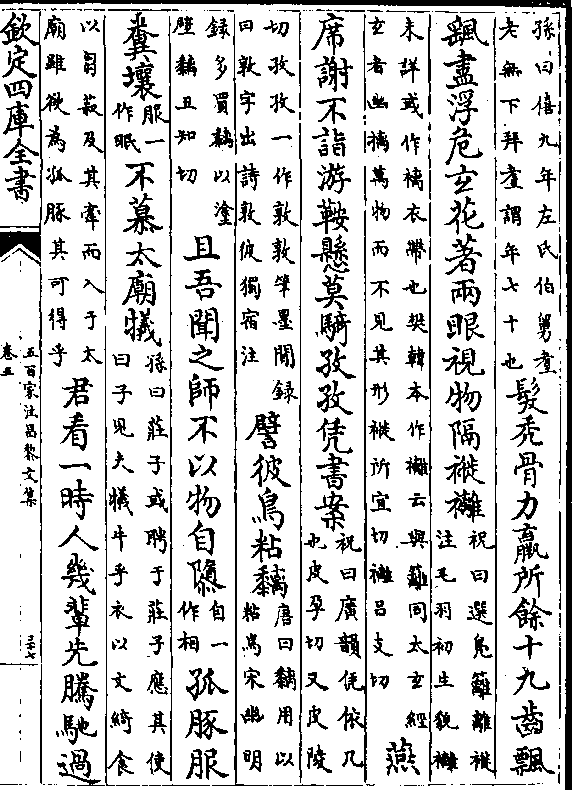 孫曰僖九年左氏伯舅耋
老無下拜耋謂年七十也
髮禿骨力羸所餘十九齒飄
飄盡浮危玄花著兩眼視物隔褷褵
祝曰選鳧雛離褷
注毛羽初生貌褵
未詳或作褵衣帶也樊韓本作䙰云與蘺同太玄經
玄者幽摛萬物而不見其形褷所宜切褵呂支切
燕
席謝不詣游鞍懸莫騎孜孜凭書案
祝曰廣韻凭依几
也皮孕切又皮陵
切孜孜一作敦敦筆墨閒録
曰敦字出詩敦彼獨宿注
譬彼鳥粘黐
唐曰黐用以
粘鳥宋幽明
録多買黐以塗
壁黐丑知切
且吾聞之師不以物自隳
自一
作相
孤豚服
糞壤
服一
作眠
不慕太廟犧
孫曰莊子或聘于莊子應其使
曰子見夫犧牛乎衣以文綺食
以芻菽及其牽而入于太
廟雖欲為孤豚其可得乎
君看一時人幾輩先騰馳過
欽定四庫全書
五百家注昌黎文集
卷五